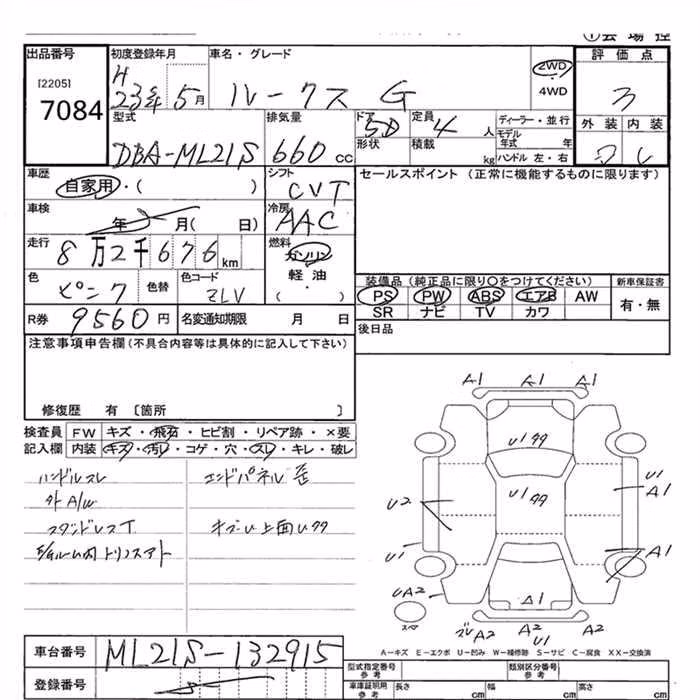 出品番号
[2205]
7084
初度登録年月
H
23年 5月
車名・グレード
ルークス G
2WD
4WD
評価点
3
外装 内装
型式
DBA-ML21S
排気量
660 cc
ドア 5D
形状
定員 4 人
積載 kg
ディーラー・並行
モデル
年式 年
ハンドル 左・右
車歴
自家用・( )
シフト
CVT
セールスポイント (正常に機能するものに限ります)
車検
年 月( 日)
冷房
AAC
走行
8万2千676km
燃料
ガソリン
軽油
( )
色
ピンク
色替
色コード
ZLV
装備品 (純正品に限り○をつけてください)
PS PW ABS エアB AW
SR ナビ TV カワ
新車保証書
有・無
R券 9560円
名変通知期限 月 日
後日品
注意事項申告欄 (不具合内容等は具体的に記入して下さい)
修復歴 有 〔箇所 〕
検査員 FW キズ・飛石・ヒビ割・リペア跡・×要
記入欄 内装 キズ・汚レ・コゲ・穴・スレ・キレ・破レ
ハンドルスレ
外A/W
エンドパネル
キズU上面Uララ
A1 A1 A1
U1ララ
U1ララ
U1
A1
U2
U1
A1
UA2
A1
A2 A2
U1
A-キズ E-エクボ U-凹み W-補修跡 S-サビ C-腐食 XX-交換済
車台番号
ML21S-132915
登録番号
型式指定番号
参考
類別区分番号
参考
車庫証明用
参考
長さ cm
幅 cm
高さ cm